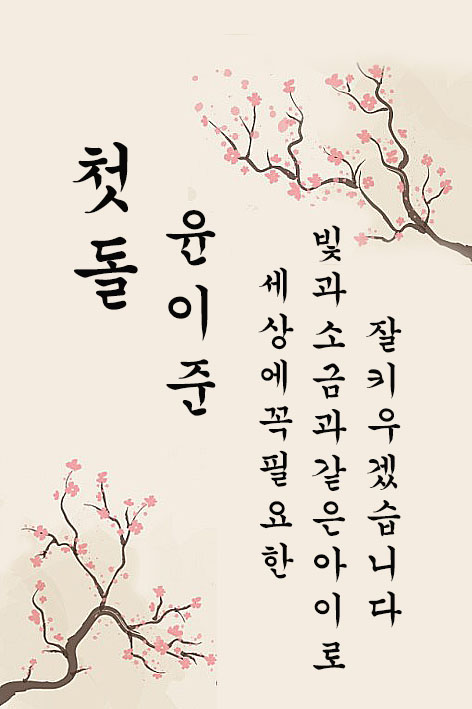 첫돌
윤이준
세상에꼭필요한
빛과소금과같은아이로
잘키우겠습니다